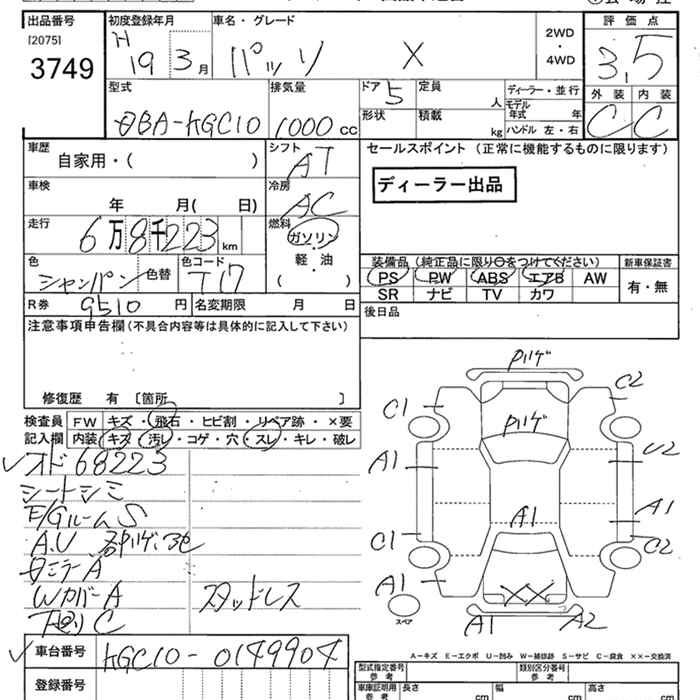 出品番号 初度登録年月 車名・グレード 2WD・4WD 評価点
[2075] H 19 3 月 パッソ X 3.5
3749
型式 排気量 ドア 5 定員 人 ディーラー・並行 外装 内装
DBA-KGC10 1000 cc 形状 積載 kg モデル年式 年 C C
ハンドル 左・右
車歴 シフト セールスポイント (正常に機能するものに限ります)
自家用・( ) AT
ディーラー出品
車検 冷房
年 月( 日) AC
走行 燃料
6万8千223 km ガソリン
軽・油
( )
色 シャンパン 色替 色コード T17
装備品 (純正品に限り○をつけてください) 新車保証書
PS PW ABS エアB AW 有・無
SR ナビ TV カワ
R券 9510 円 名変期限 月 日
後日品
注意事項申告欄 (不具合内容等は具体的に記入して下さい)
修復歴 有 〔箇所 〕
検査員記入欄 FW キズ・飛石・ヒビ割・リペア跡・×要
内装 キズ・汚レ・コゲ・穴・スレ・キレ・破レ
✓オド68223
シートシミ
F/GルームS
A.U
ミラーA
WカバーA スタッドレス
下廻りC
✓車台番号 KGC10-0149904
登録番号
ハゲ
C1 C2
ハゲ
A1 U2
A1 A1
C1 C2
A1 XX
スペア A1 A2
A-キズ E-エクボ U-凹み W-補修跡 S-サビ C-腐食 ××-交換済
型式指定番号 参考 類別区分番号 参考
車庫証明用 参考 長さ cm 幅 cm 高さ cm